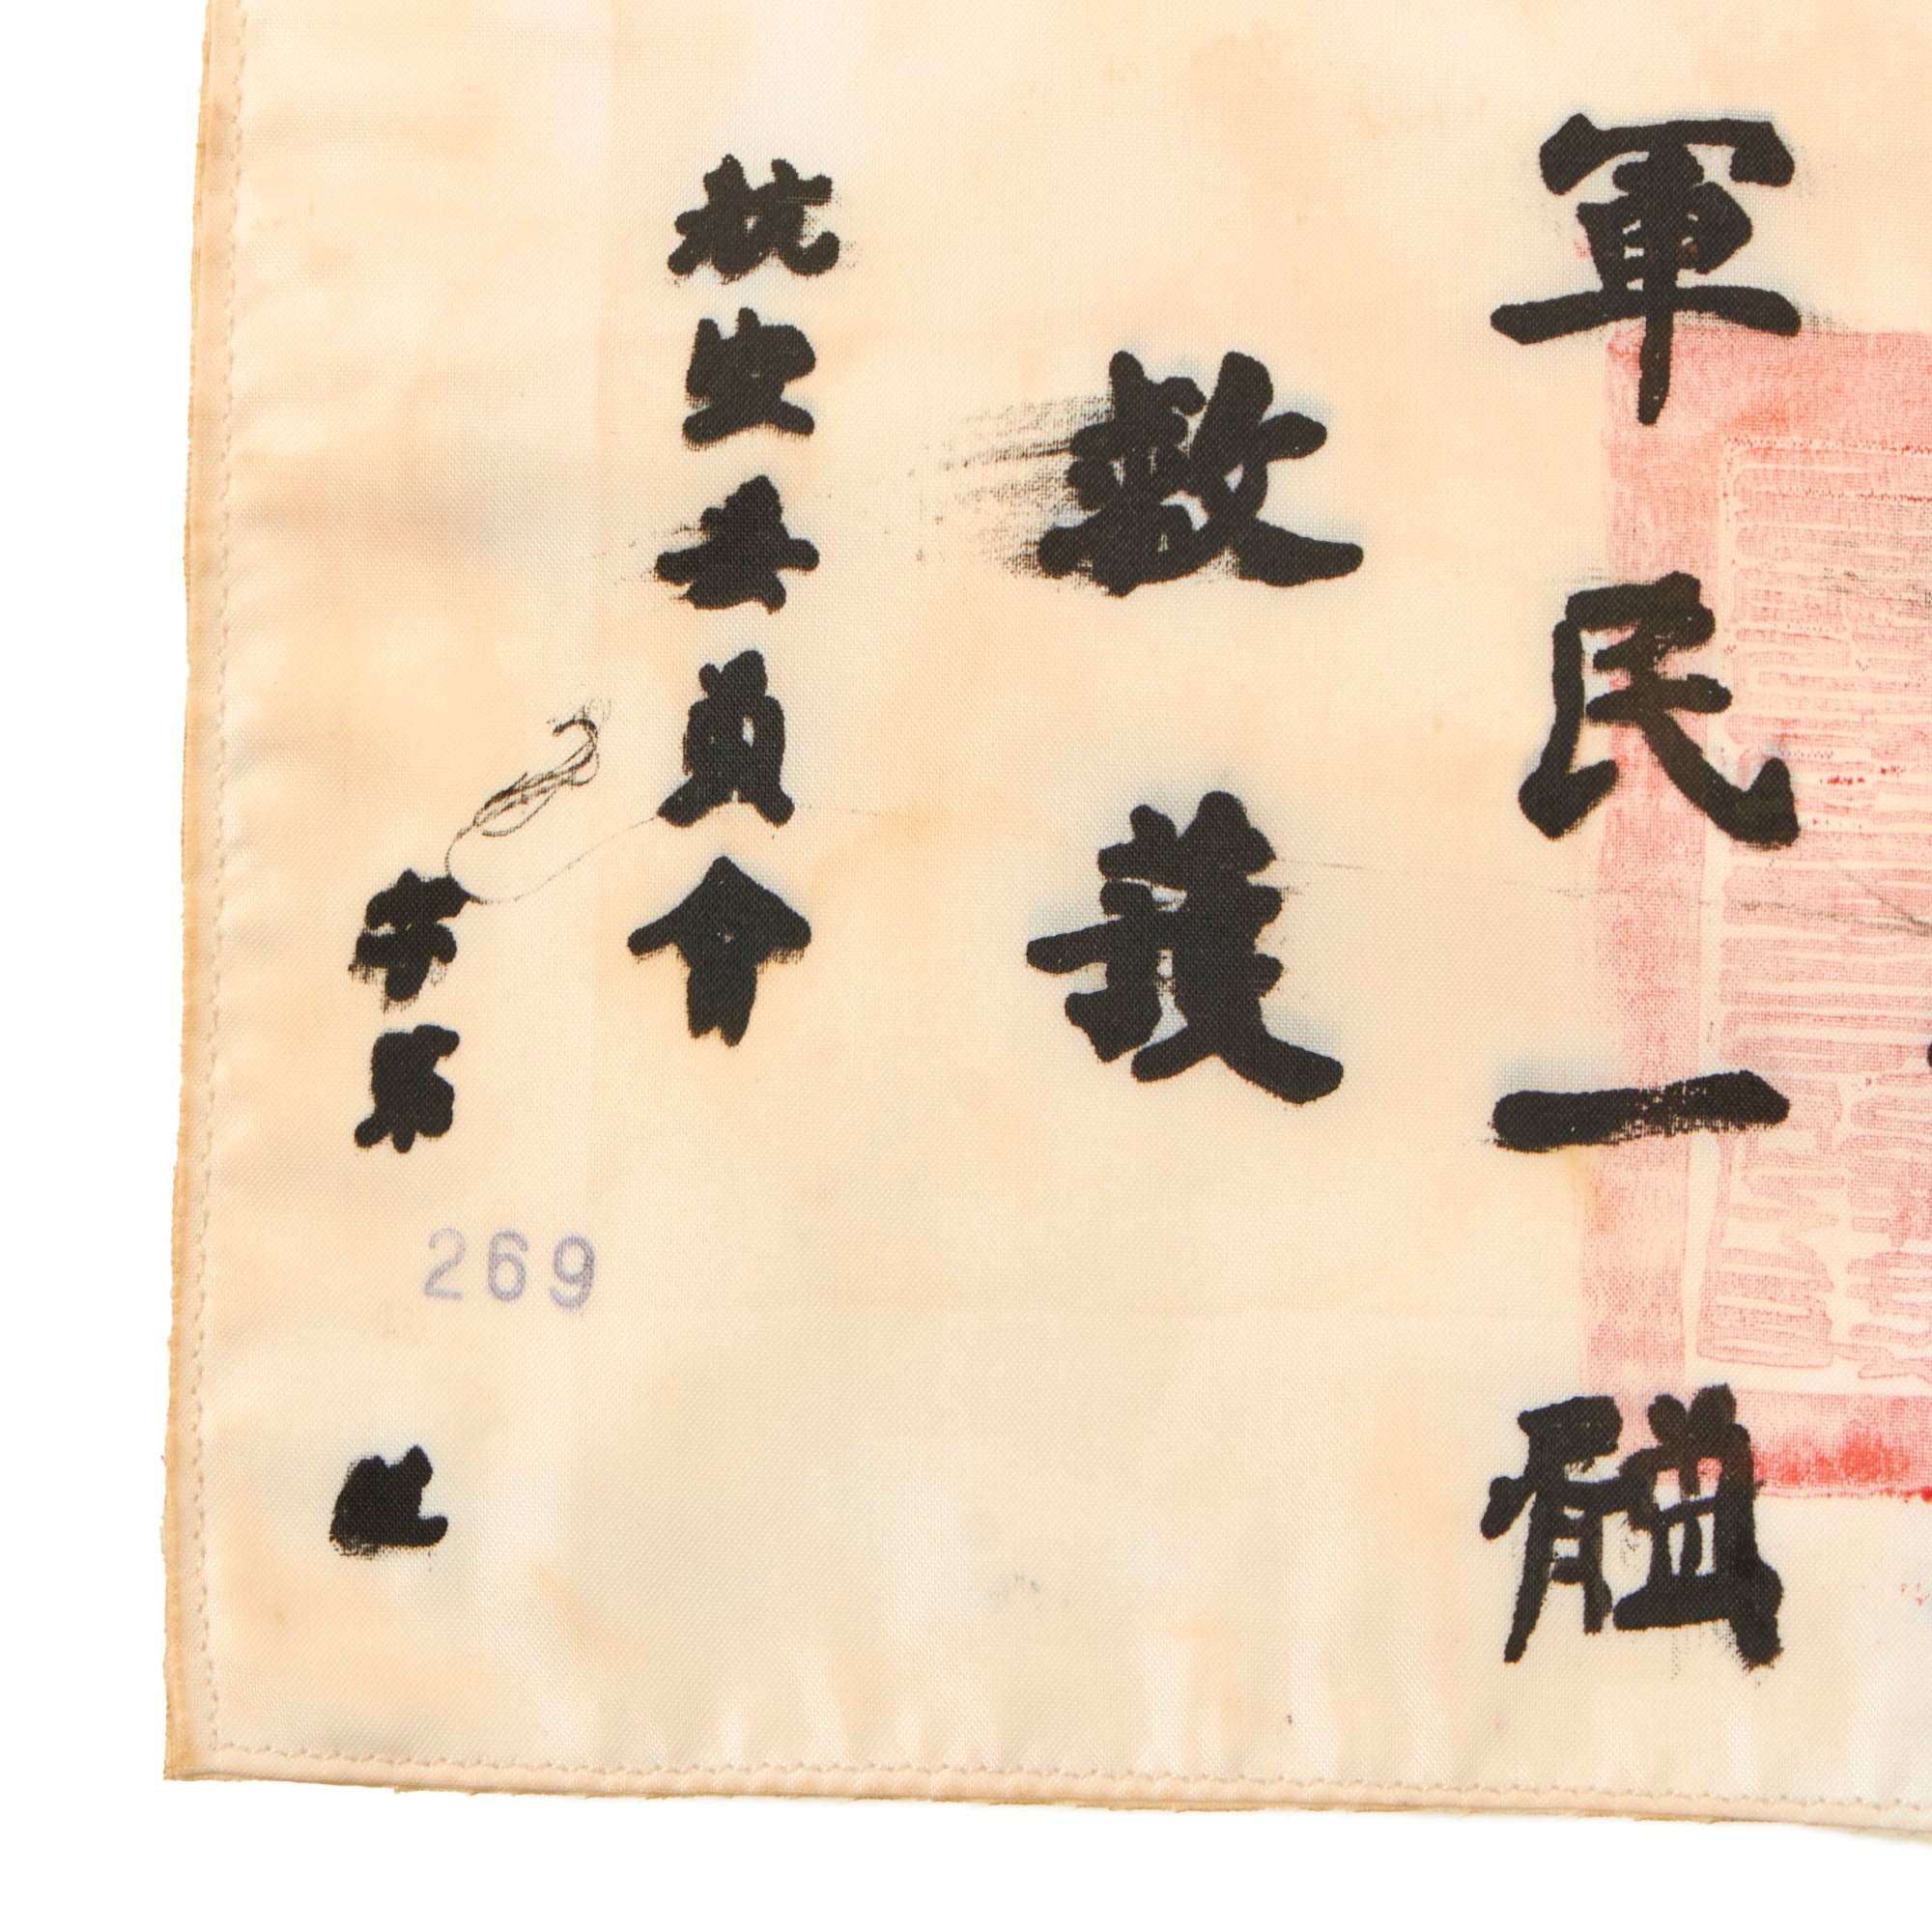 軍民一體
救護
航空委員會
字第 269 號